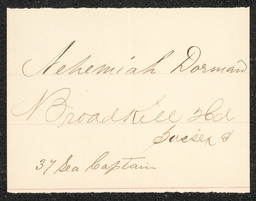 Nehemiah Dorman
Broadkill Hd
Sussex
37 Sea Captain